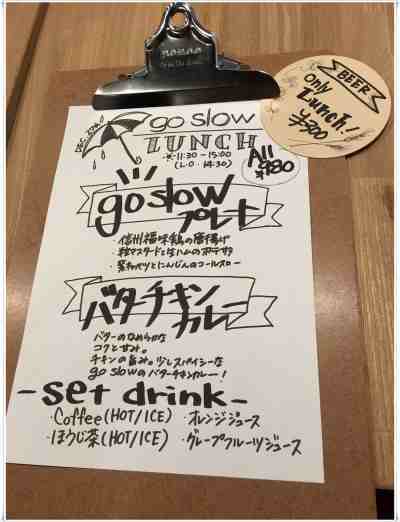 go slow
LUNCH
11:30-15:00
(L.O. 14:30)
All
¥980
BEER
only
Lunch!
¥300
go slow
プレート
・信州福味鶏の唐揚げ
・粒マスタードと生ハムのポテサラ
・紫キャベツとにんじんのコールスロー
バターチキン
カレー
バターのなめらかな
コクと甘み。
チキンの旨み。少しスパイシーな
go slowのバターチキンカレー!
-set drink-
・Coffee(HOT/ICE) ・オレンジジュース
・ほうじ茶(HOT/ICE) ・グレープフルーツジュース